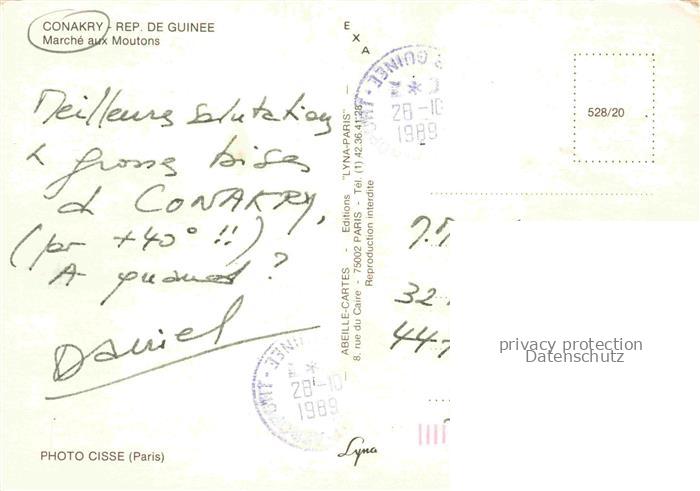 CONAKRY - REP. DE GUINEE
Marché aux Moutons
Meilleures salutations
& grosses bises
de CONAKRY,
(par +40° !!)
A quand ?
Daniel
PHOTO CISSE (Paris)
E
X
A
ABEILLE-CARTES - Editions "LYNA-PARIS" -
8, rue du Caire - 75002 PARIS - Tél. (1) 42.36.41.28
Reproduction interdite
Lyna
GUINEE
28-10
1989
GUINEE
28-10
1989
AEROPORT
528/20
32
44
privacy protection
Datenschutz